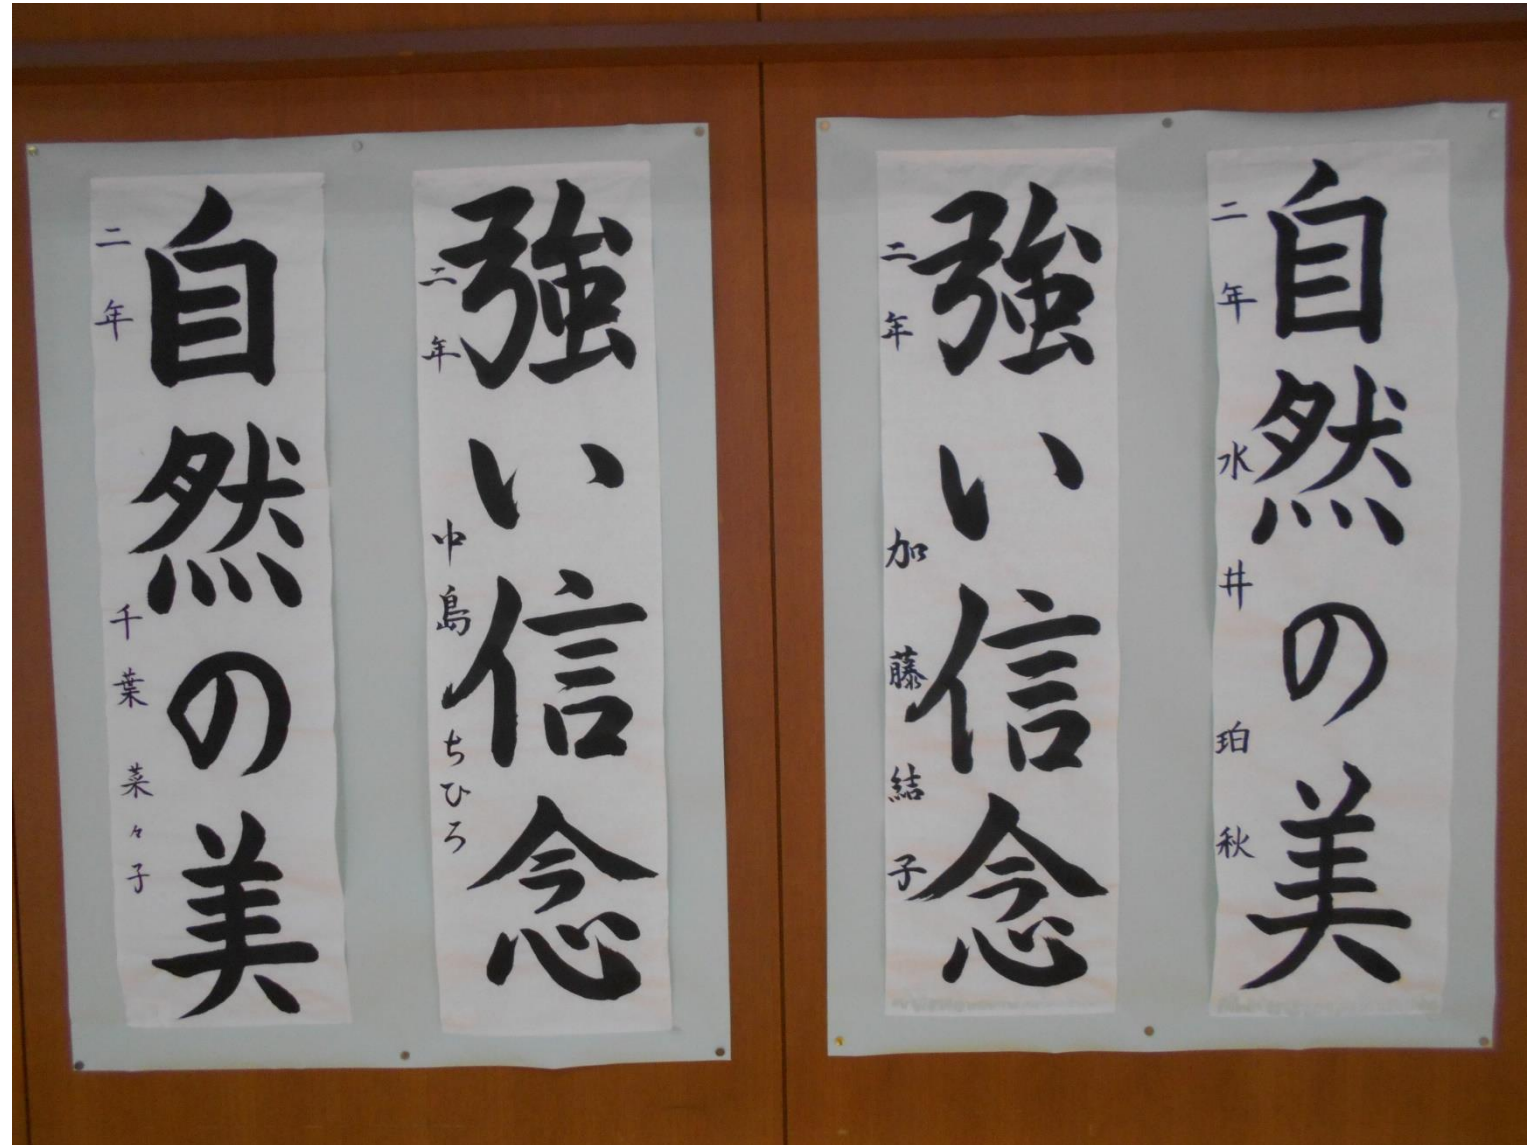 自然の美
二年 水井 珀秋
強い信念
二年 加藤結子
強い信念
二年 中島ちひろ
自然の美
二年 千葉菜々子